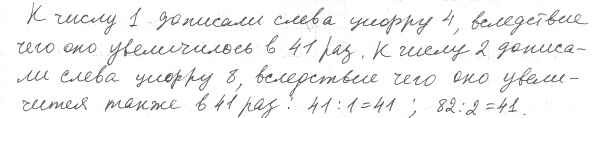 К числу 1 дописали слева цифру 4, вследствие
чего оно увеличилось в 41 раз. К числу 2 дописа-
ли слева цифру 8, вследствие чего оно увели-
чится также в 41 раз: 41:1=41; 82:2=41.